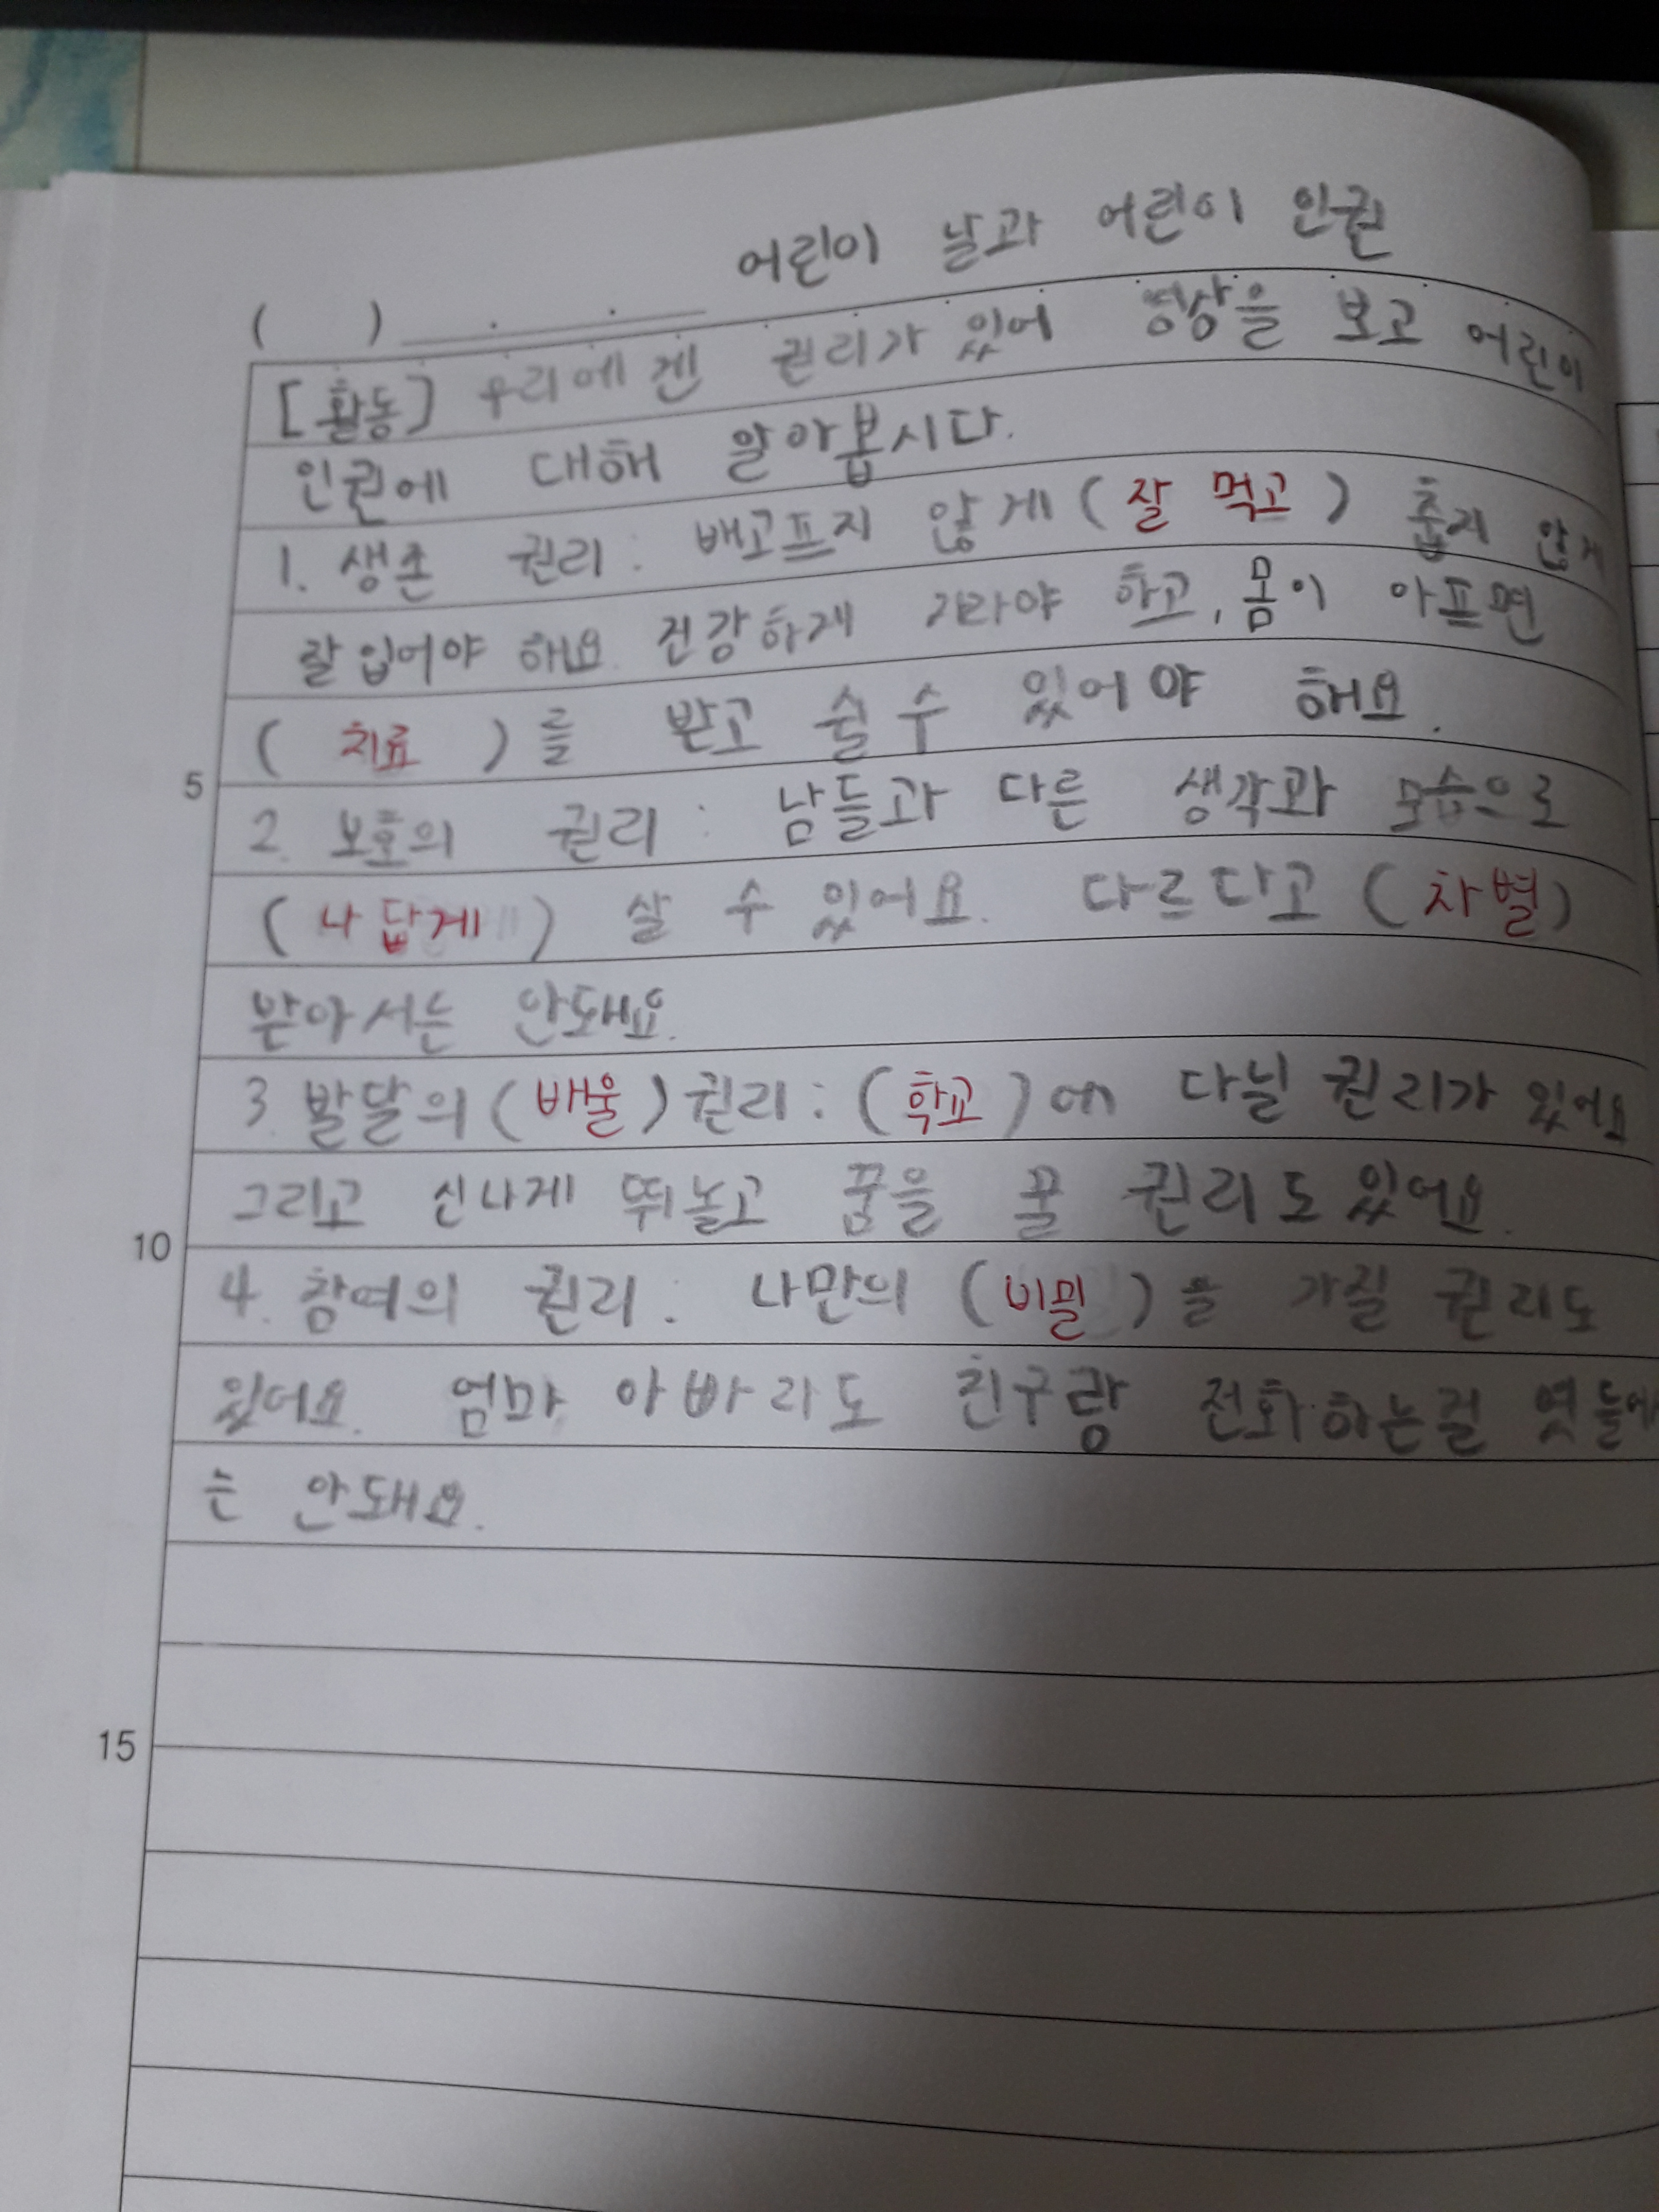 어린이 날과 어린이 인권
( )
[활동] 우리에겐 권리가 있어 영상을 보고 어린이
인권에 대해 알아봅시다.
1. 생존 권리: 배고프지 않게 (잘 먹고) 춥지 않게
잘 입어야 해요. 건강하게 자라야 하고, 몸이 아프면
(치료)를 받고 쉴 수 있어야 해요.
5
2. 보호의 권리: 남들과 다른 생각과 모습으로
(나답게) 살 수 있어요. 다르다고 (차별)
받아서는 안돼요.
3. 발달의 (배울) 권리: (학교)에 다닐 권리가 있어요
그리고 신나게 뛰놀고 꿈을 꿀 권리도 있어요.
10
4. 참여의 권리: 나만의 (비밀)을 가질 권리도
있어요. 엄마 아빠라도 친구랑 전화하는걸 엿들어
는 안돼요.
15